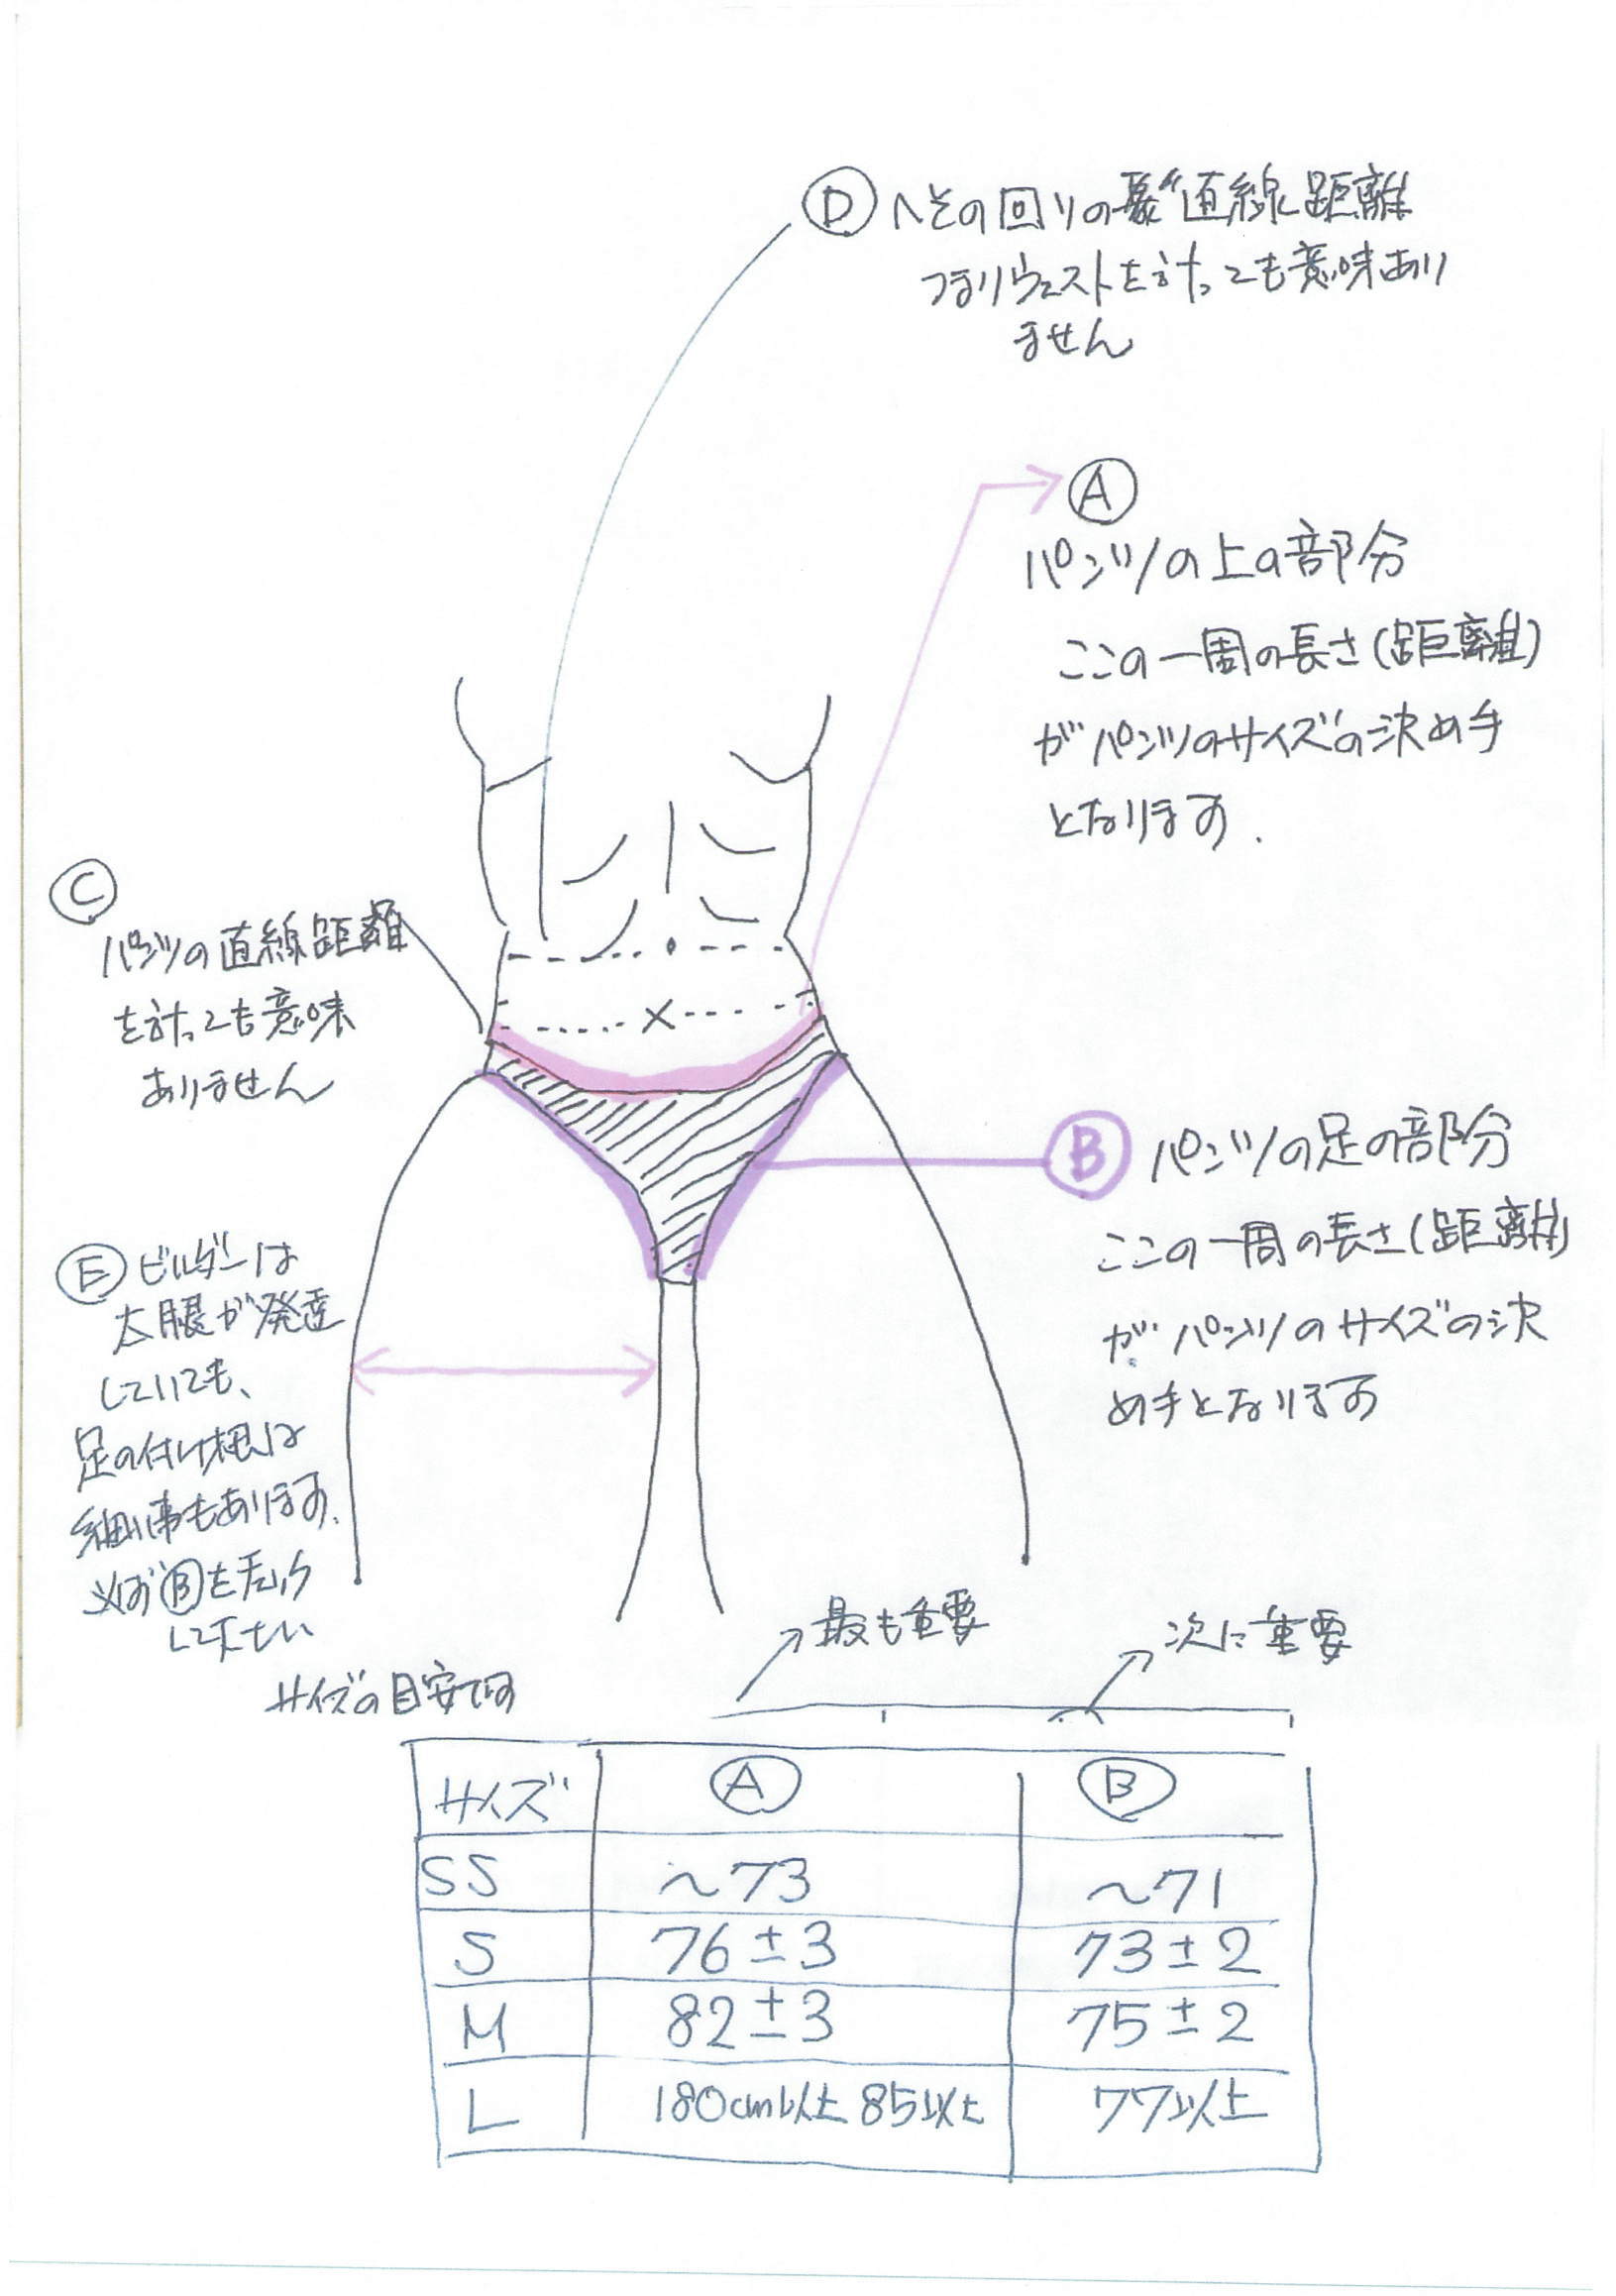 Ⓓ へその回りの 直線距離
つまりウェストを計っても意味あり
ません
Ⓐ
パンツの上の部分
ここの一周の長さ(距離)
がパンツのサイズの決め手
となります.
Ⓒ
パンツの直線距離
を計っても意味
ありません
Ⓑ パンツの足の部分
ここの一周の長さ(距離)
がパンツのサイズの決
め手となります
Ⓔ ビルダーは
大腿が発達
していても、
足の付け根は
細い事もあります.
必ずⒷを
して下さい
最も重要
次に重要
サイズの目安です
サイズ Ⓐ Ⓑ
SS ～73 ～71
S 76±3 73±2
M 82±3 75±2
L 180cm以上 85以上 77以上